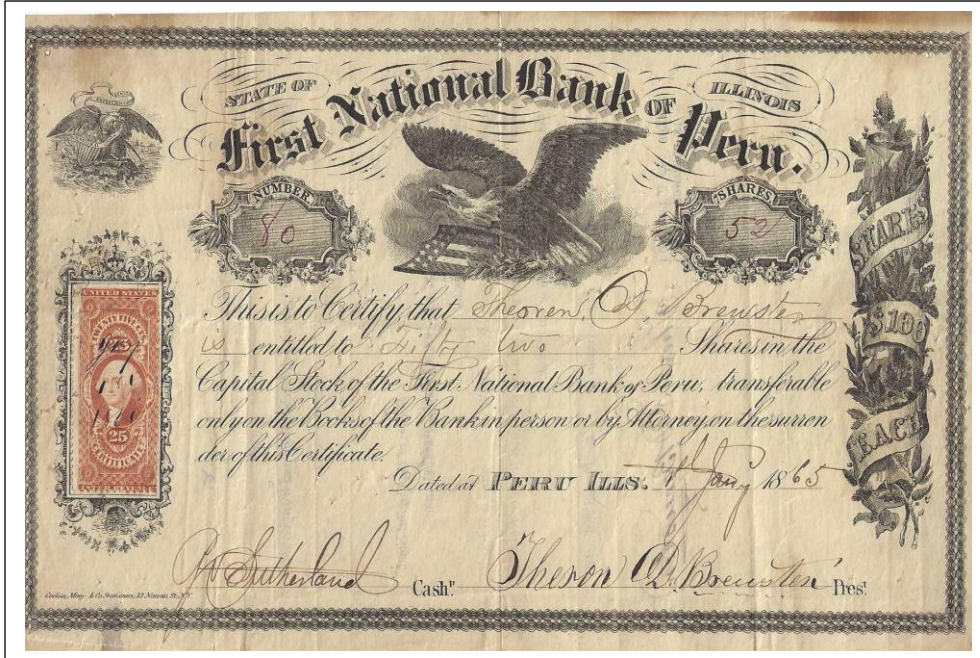 STATE OF ILLINOIS
First National Bank OF Peru.
NUMBER
80
SHARES
52
This is to Certify, that Theoren, D, Brewster
is entitled to Fifty two Shares in the
Capital Stock of the First National Bank of Peru, transferable
only on the Books of the Bank in person or by Attorney on the surren
der of this Certificate.
Dated at PERU ILLS. Jany 1865
Sutherland Cashr. Theron D. Brewster Prest.
SHARES
$100
EACH
UNITED STATES
TWENTY FIVE
25
CERTIFICATE